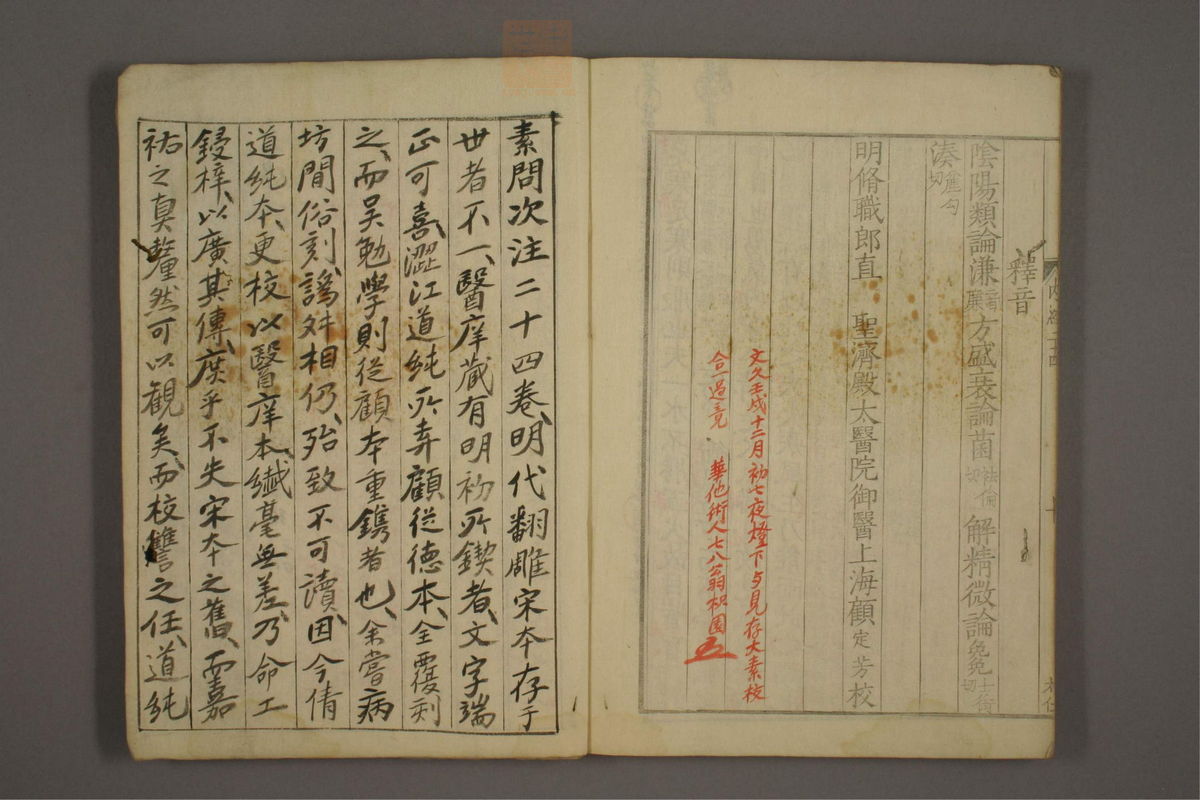 釋音
陰陽類論溓音廉方盛衰論菌袪倫切解精微論毚士銜切
湊麄勾切
明脩職郎直聖濟殿太醫院御醫上海顧定芳校
文久壬戌十二月初七夜燈下与見存大素校
合一過竟 華他術人七八翁枳園
素問次注二十四卷、明代翻雕宋本存于
世者不一、醫庠藏有明初所鍥者、文字端
正可喜、澀江道純所弆顧從德本、全覆刻
之、而吴勉學則從顧本重鐫者也、余嘗病
坊間俗刻、譌舛相仍、殆致不可讀、因今倩
道純本、更校以醫庠本、纎毫無差、乃命工
鋟梓、以廣其傳、庶乎不失宋本之舊、而嘉
祐之真釐然可以觀矣、而校讐之任、道純